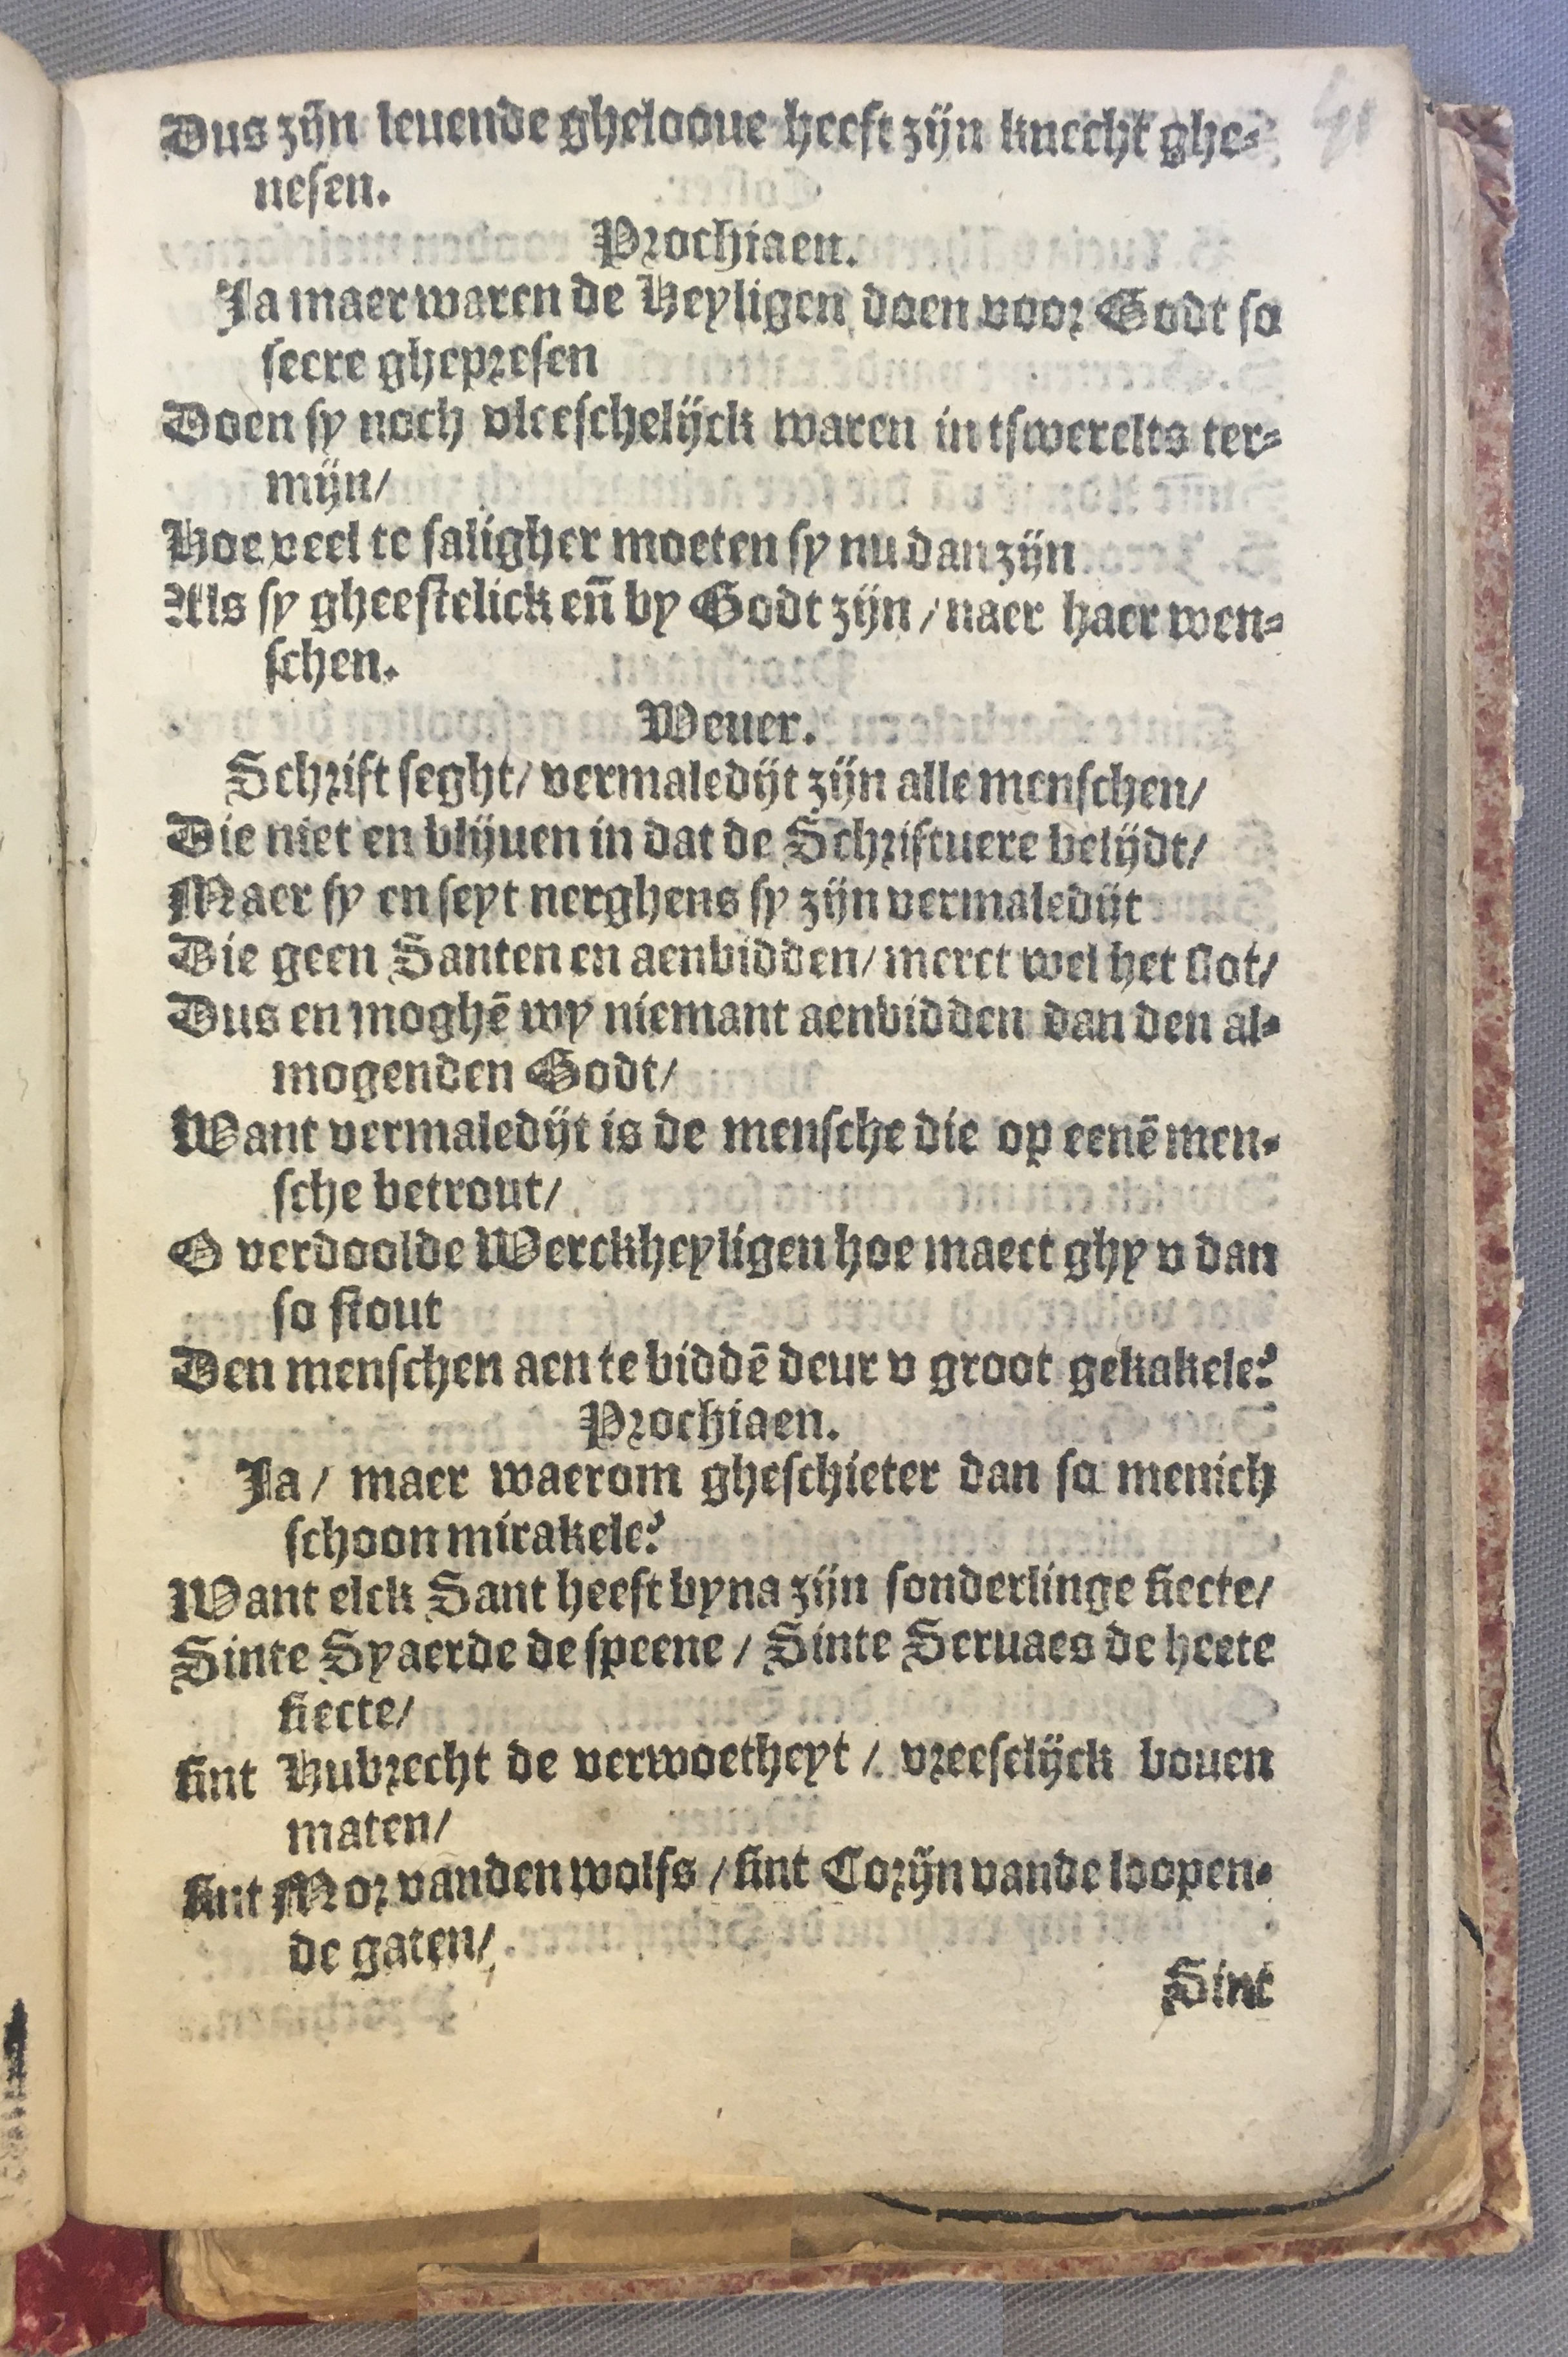 Dus zijn leuende ghelooue heeft zijn knecht ghe-
nesen.
Prochiaen.
Ja maer waren de Heyligen doen voor Godt so
seere ghepresen
Doen sy noch vleeschelijck waren in tswerelts ter-
mijn/
Hoe veel te saligher moeten sy nu dan zijn
Als sy gheestelick en̄ by Godt zijn / naer haer wen-
schen.
Weuer.
Schrift seght/ vermaledijt zijn alle menschen/
Die niet en blijuen in dat de Schriftuere belijdt/
Maer sy en seyt nerghens sy zijn vermaledijt
Die geen Santen en aenbidden/ merct wel het slot/
Dus en moghē wy niemant aenbidden dan den al-
mogenden Godt/
Want vermaledijt is de mensche die op eenē men-
sche betrout/
O verdoolde Werckheyligen hoe maect ghy v dan
so stout
Den menschen aen te biddē deur v groot gekakele?
Prochiaen.
Ja / maer waerom gheschieter dan so menich
schoon mirakele?
Want elck Sant heeft byna zijn sonderlinge siecte/
Sinte Syaerde de speene / Sinte Seruaes de heete
siecte/
sint Hubrecht de verwoetheyt / vreeselijck bouen
maten/
sint Mor vanden wolfs / sint Corijn vande loopen-
de gaten/
Sint